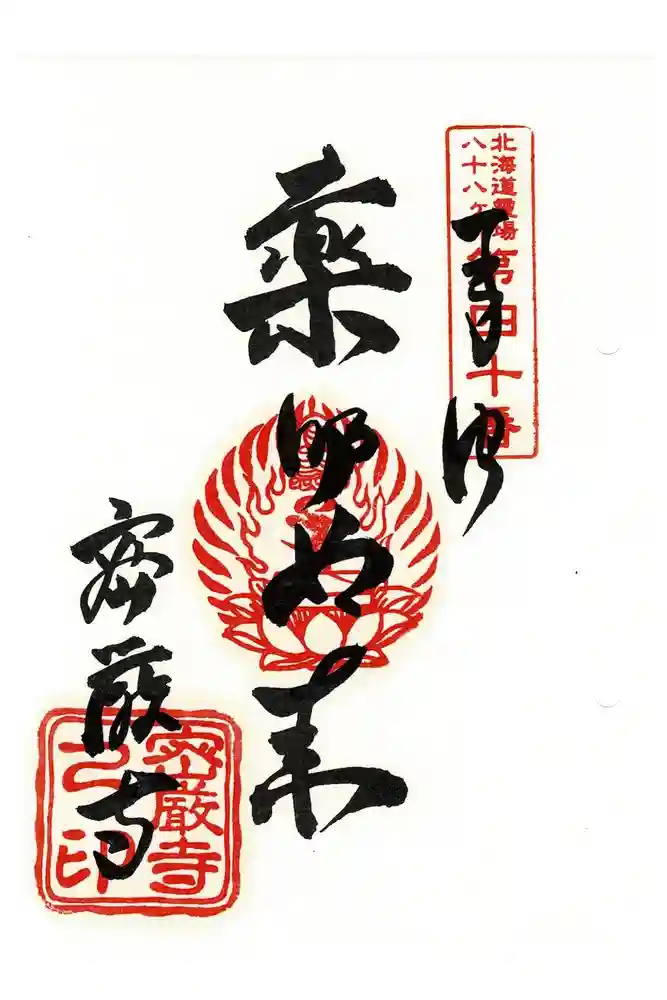 北海道霊場
八十八ヶ
第四十番
奉拝
薬師如来
密厳寺
密厳寺
之印